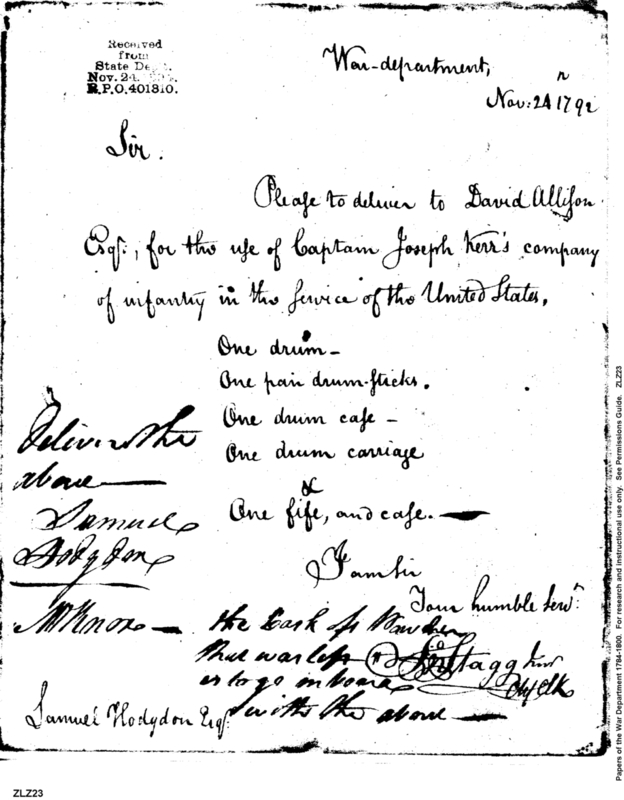 Received
from
State De
Nov. 24.
R.P.O. 401810.
War-department,
Nov: 24 1792
Sir.
Please to deliver to David Allison
Esqr., for the use of Captain Joseph Kerr's company
of infantry in the Service of the United States,
One drum-
One pair drum-sticks.
One drum case -
One drum carriage
&
One fife, and case.
Deliver the
above
Samuel
Hodgdon
I am Sir
Your humble Servt.
Mr Knox
the Cask of Powder
that was left
is to go on board
with the above
Jno Stagg Junr
Chf Clk
Samuel Hodgdon Esqr.
Papers of the War Department 1784-1800. For research and instructional use only. See Permissions Guide. ZLZ23
ZLZ23